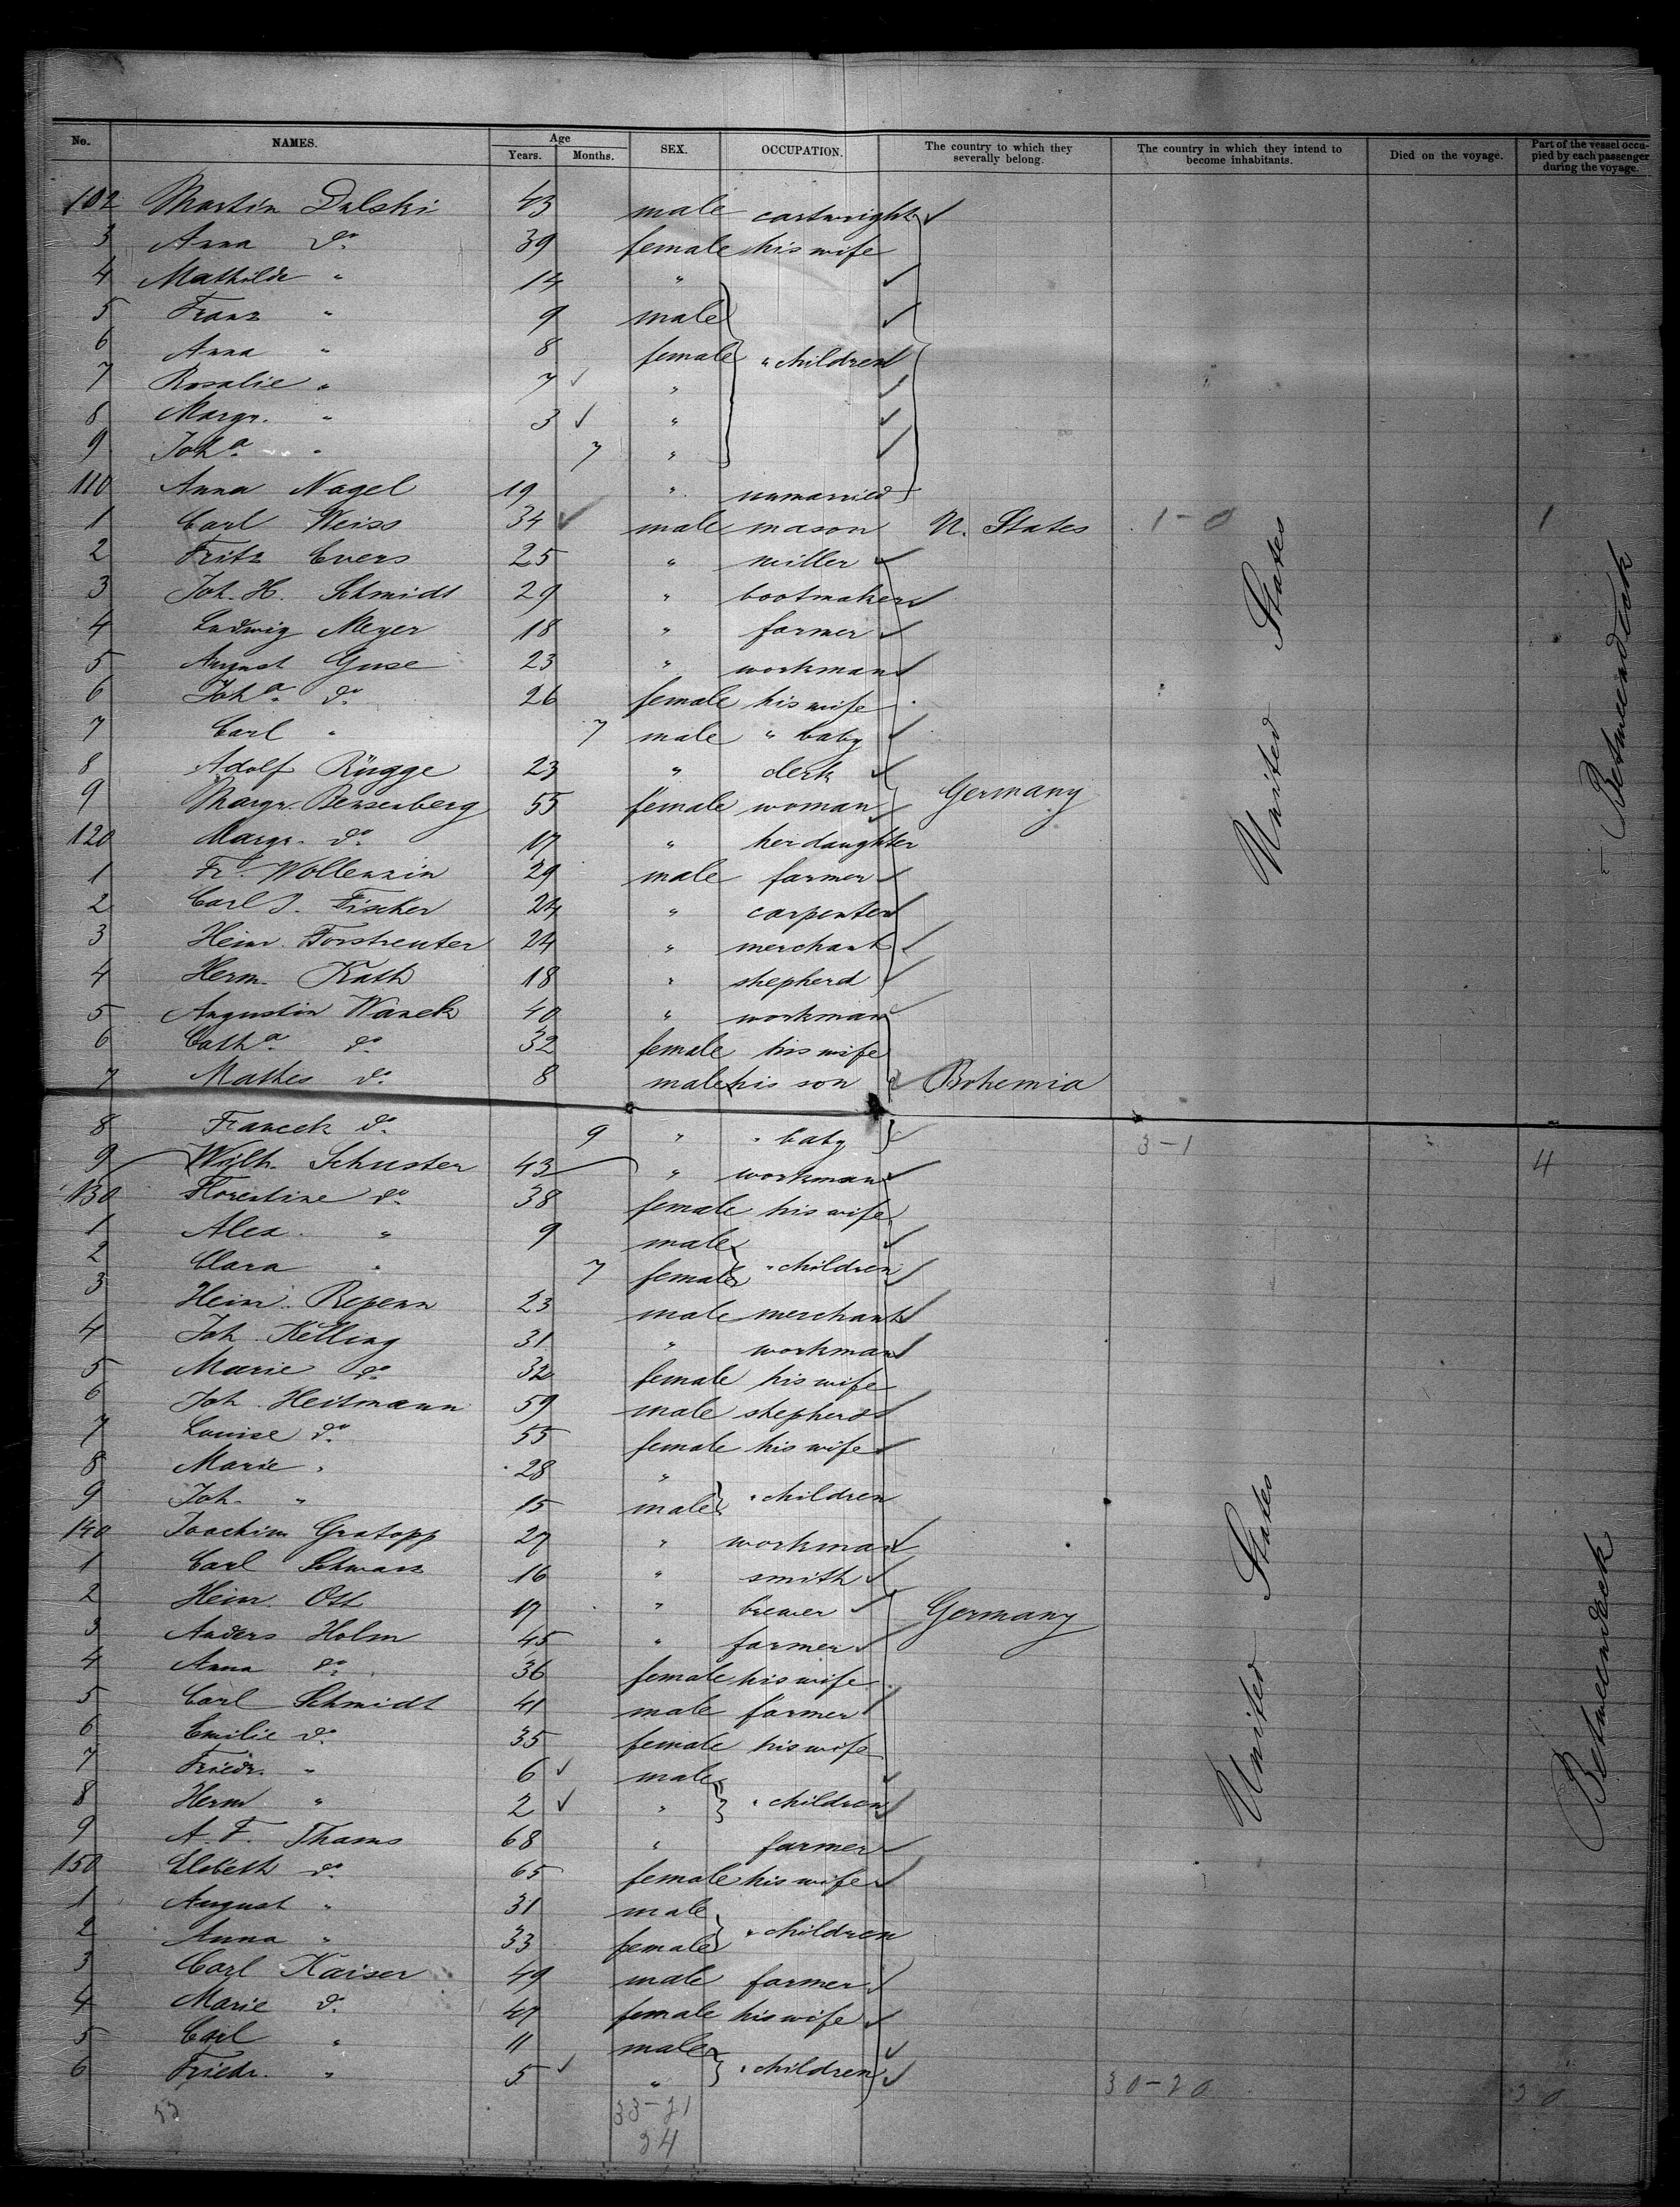 No. NAMES. Age Years. Months. SEX. OCCUPATION. The country to which they severally belong. The country in which they intend to become inhabitants. Died on the voyage. Part of the vessel occupied by each passenger during the voyage.
102 Martin Dulski 43 male cartwright
3 Anna do 39 female his wife
4 Mathilde " 14 "
5 Franz " 9 male
6 Anna " 8 female " children
7 Rosalie " 7 "
8 Margr. " 3 "
9 Joha. " 7 "
110 Anna Nagel 19 " unmarried
1 Carl Weiss 34 male mason U. States 1-0 1
2 Fritz Evers 25 " miller
3 Joh. H. Schmidt 29 " bootmaker
4 Ludwig Meyer 18 " farmer
5 August Guse 23 " workman
6 Joha. do 26 female his wife
7 Carl " 7 male " baby
8 Adolf Rügge 23 " clerk
9 Margr. Bensenberg 55 female woman Germany United States Betweendeck
120 Margr. do 17 " her daughter
1 Fr. Wollenzin 29 male farmer
2 Carl J. Fischer 24 " carpenter
3 Heinr. Forstreuter 24 " merchant
4 Herm. Kath 18 " shepherd
5 Augustin Wanek 40 " workman
6 Catha. do 32 female his wife
7 Mathes do 8 male his son Bohemia
8 Francek do 9 " " baby 3-1 4
9 Wilh. Schuster 43 " workman
130 Florentine do 38 female his wife
1 Alex. " 9 male
2 Clara " 7 female " children
3 Heinr. Repenn 23 male merchant
4 Joh. Kelling 31 " workman
5 Marie do 32 female his wife
6 Joh. Heitmann 59 male shepherd
7 Louise do 55 female his wife
8 Marie " 28 "
9 Joh. " 15 male " children
140 Joachim Gratopp 27 " workman
1 Carl Schwarz 16 " smith
2 Heinr. Ott 17 " brewer Germany United States Betweendeck
3 Anders Holm 45 " farmer
4 Anna do 36 female his wife
5 Carl Schmidt 41 male farmer
6 Emilie do 35 female his wife
7 Friedr. " 6 male
8 Herm. " 2 " " children
9 A. F. Thams 68 " farmer
150 Elsbeth do 65 female his wife
1 August " 31 male
2 Anna " 33 female " children
3 Carl Kaiser 49 male farmer
4 Marie do 47 female his wife
5 Carl " 11 male
6 Friedr. " 5 " " children 30-20
33-21
34